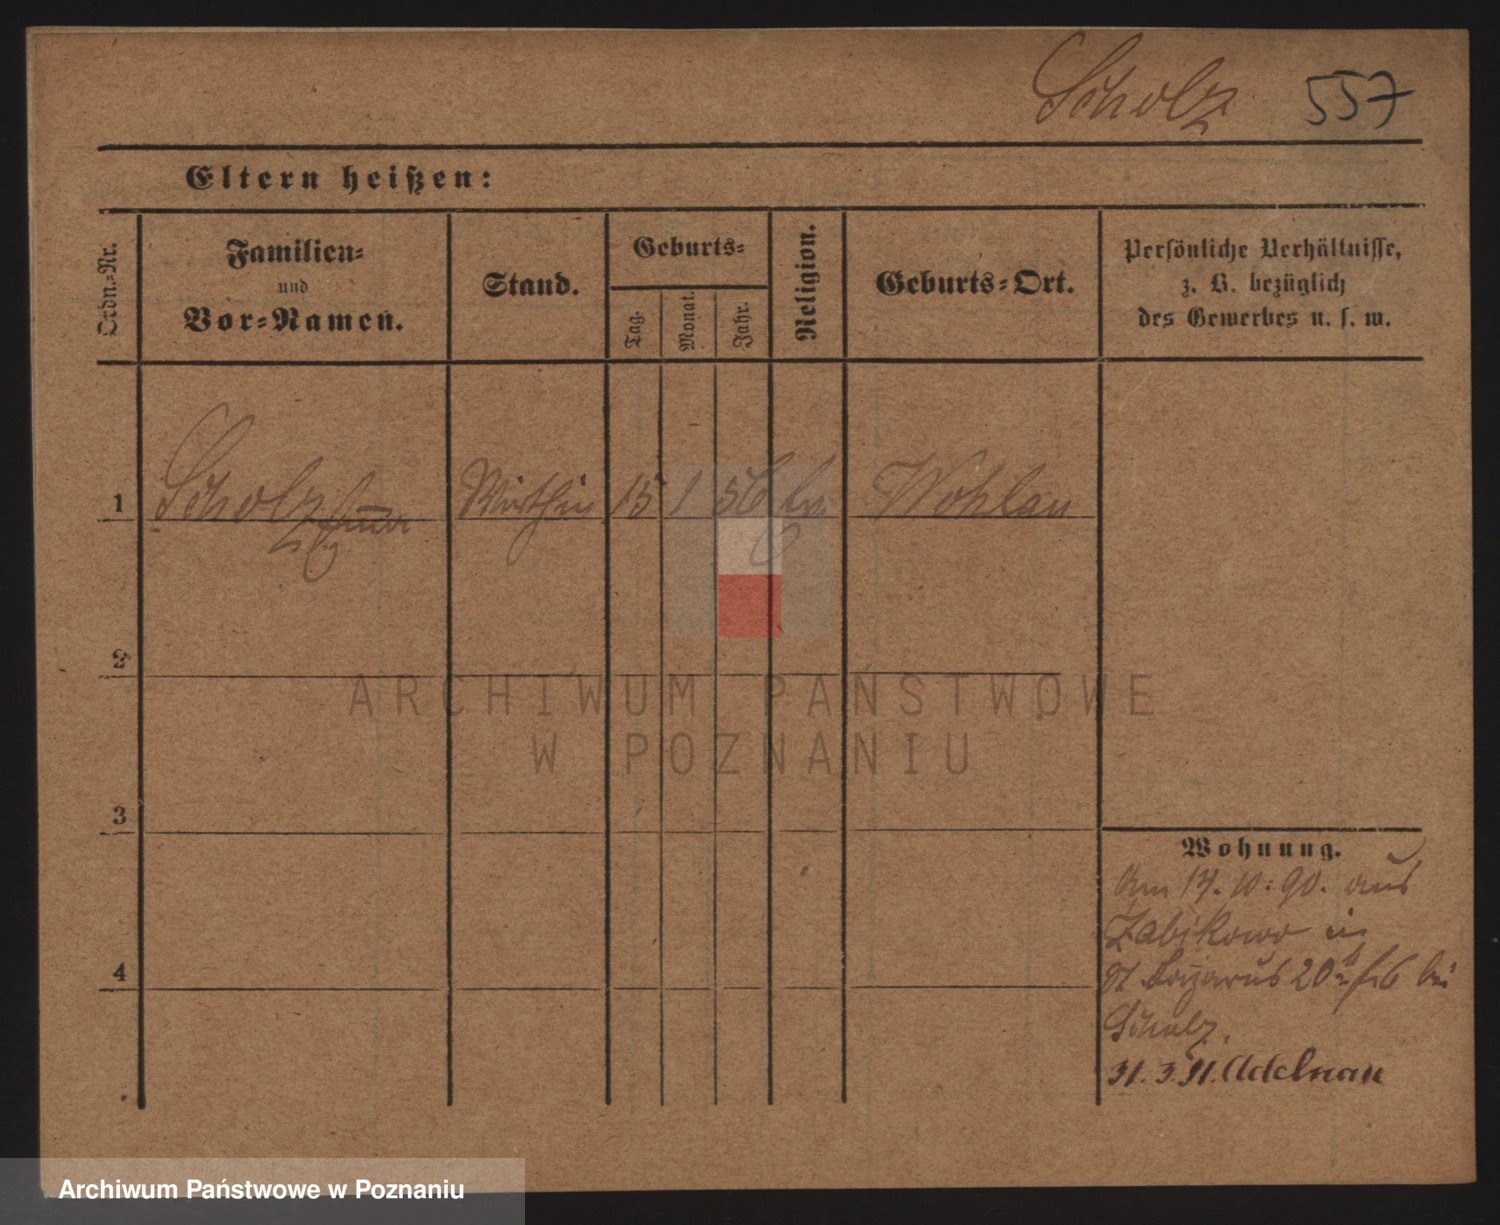 Scholz 557
Eltern heißen:
Ordn.-Nr.
Familien-
und
Vor-Namen.
Stand.
Geburts-
Tag.
Monat.
Jahr.
Religion.
Geburts-Ort.
Persönliche Verhältnisse,
z. B. bezüglich
des Gewerbes u. s. w.
1 Scholz Wirthin 15 1 56 Wohlau
2
ARCHIWUM PAŃSTWOWE
W POZNANIU
3
Wohnung.
Am 17. 10. 90. aus
Zabikowo in
St. Lazarus 20 bei
4
Scholz.
31. 3. 91. Adelnau
Archiwum Państwowe w Poznaniu